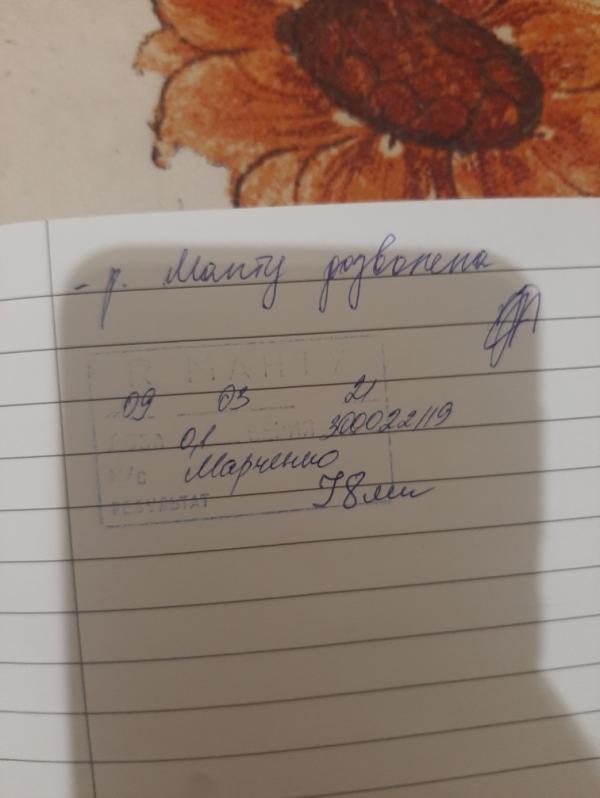 - р. Манту дозволена
Я МАНТУ
09 03 21
0,1 300022/19
М/С Марченко
РЕЗУЛЬТАТ
8мм